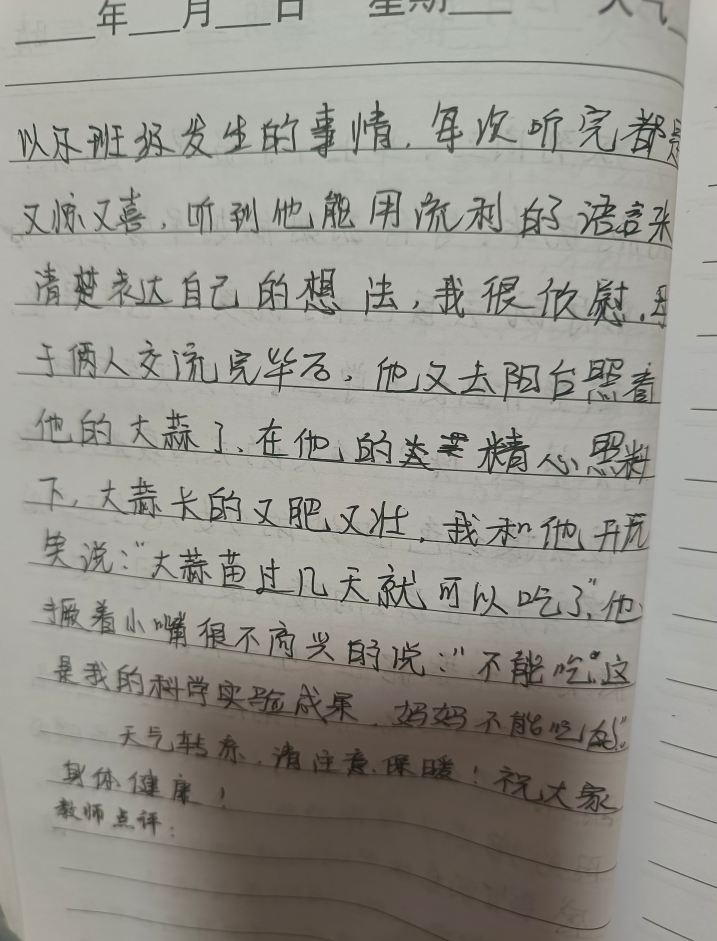 年 月 日 星期 天气
以及班级发生的事情,每次听完都是
又惊又喜,听到他能用流利的语言来
清楚表达自己的想法,我很欣慰,母
子俩人交流完毕后,他又去阳台照看
他的大蒜了、在他的精心照料
下,大蒜长的又肥又壮,我和他开玩
笑说:“大蒜苗过几天就可以吃了”,他
撅着小嘴很不高兴的说:“不能吃。”这
是我的科学实验成果,妈妈不能吃
天气转凉,请注意保暖!祝大家
身体健康!
教师点评: